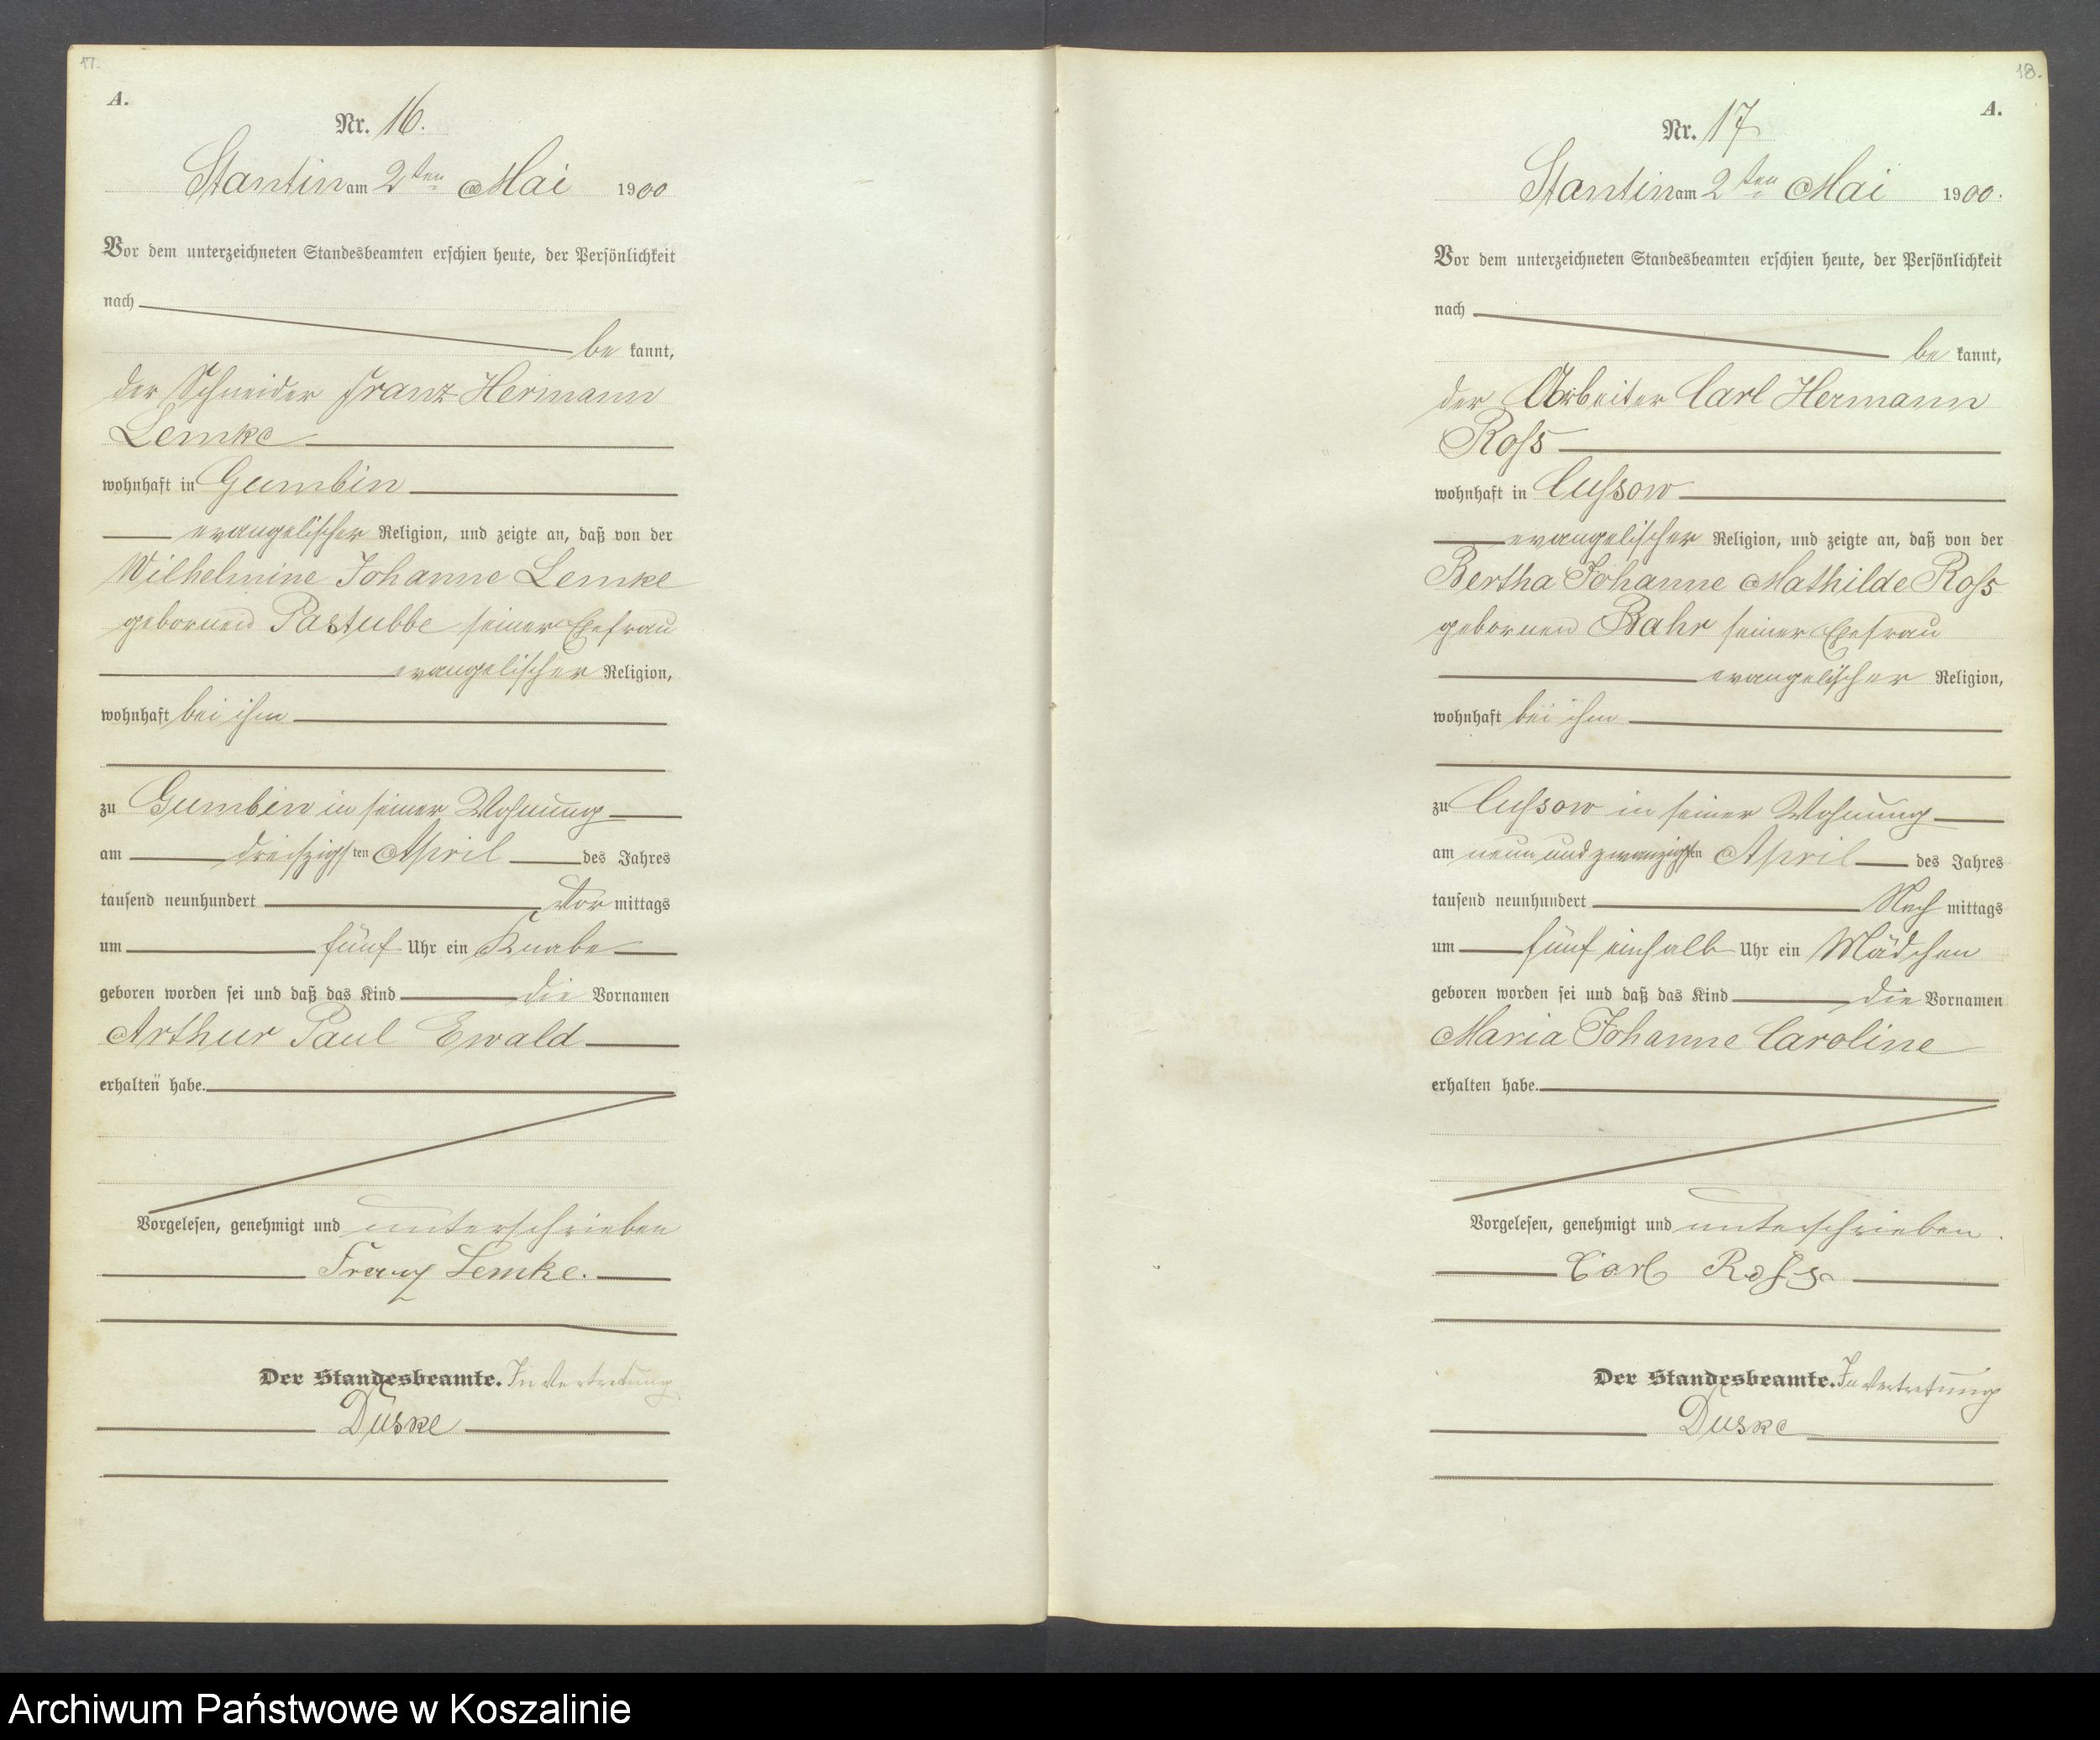 17.
A.
Nr. 16.
Stantin am 2ten Mai 1900
Vor dem unterzeichneten Standesbeamten erschien heute, der Persönlichkeit
nach
be kannt,
der Schneider Franz Hermann
Lemke
wohnhaft in Gumbin
evangelischer Religion, und zeigte an, daß von der
Wilhelmine Johanne Lemke
gebornen Pastubbe seiner Ehefrau
evangelischer Religion,
wohnhaft bei ihm
zu Gumbin in seiner Wohnung
am dreißigsten April des Jahres
tausend neunhundert Vor mittags
um fünf Uhr ein Knabe
geboren worden sei und daß das Kind die Vornamen
Arthur Paul Ewald
erhalten habe.
Vorgelesen, genehmigt und unterschrieben
Franz Lemke.
Der Standesbeamte. In Vertretung
Düske
18.
A.
Nr. 17
Stantin am 2ten Mai 1900.
Vor dem unterzeichneten Standesbeamten erschien heute, der Persönlichkeit
nach
be kannt,
der Arbeiter Carl Hermann
Roß
wohnhaft in Cussow
evangelischer Religion, und zeigte an, daß von der
Bertha Johanne Mathilde Roß
gebornen Bahr seiner Ehefrau
evangelischer Religion,
wohnhaft bei ihm
zu Cussow in seiner Wohnung
am neun und zwanzigsten April des Jahres
tausend neunhundert Nach mittags
um fünf einhalb Uhr ein Mädchen
geboren worden sei und daß das Kind die Vornamen
Maria Johanne Caroline
erhalten habe.
Vorgelesen, genehmigt und unterschrieben.
Carl Roß
Der Standesbeamte. In Vertretung
Düske
Archiwum Państwowe w Koszalinie